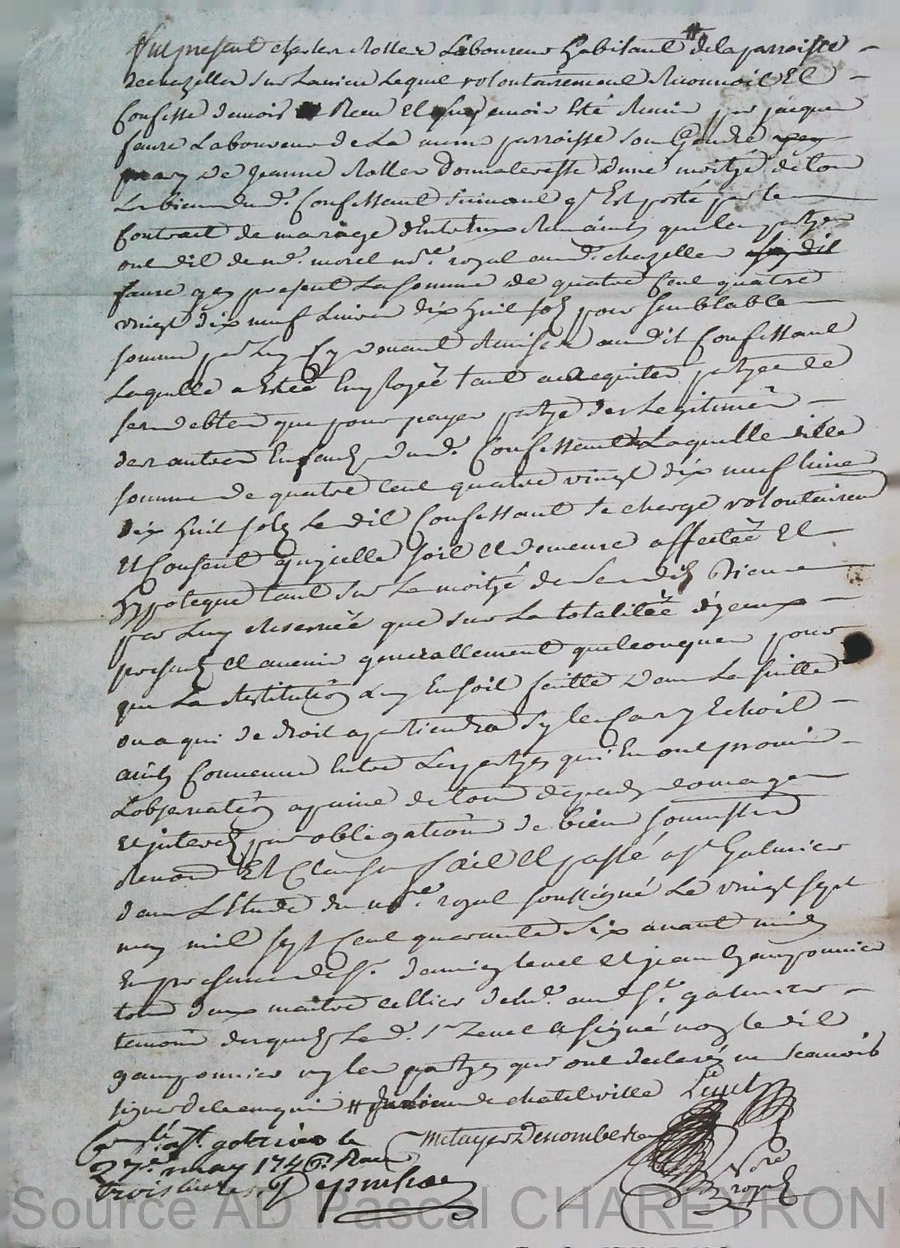 fut present charles Rollet Laboureur habitant # de la parroisse
de chazelles sur Lavieu Lequel volontairement Reconnoit Et
Confesse d'avoir Receu Et luy avoir Esté Remis par jacques
faure Laboureur de La meme parroisse son Gendre
mary de Jeanne Rollet Donnateresse d'une moitzé de tous
Les biens dud. Confessant suivant qu'il Est porté par le
Contrait de mariage d'Entr'eux Receu ainsy que les partyes
ont dit de Me. morel nore. royal aud. chazelles
faure icy present La somme de quatre Cent quatre
vingt dix neuf Livres dix huit sols pour semblable
somme par Luy Cy devant Remise audit Confessant
Laquelle a Estée Employée tant a acquiter partye de
ses debtes que pour payer partye des Legitimes
des autres Enfants dud. Confessant Laquelle ditte
somme de quatre Cent quatre vingt dix neuf livres
dix huit sols Ledit Confessant se charge volontairement
Et Consent qu'icelle soit et demeure affectée Et
hypotequé tant sur La moitzé de sesdits Biens
par Luy Reservée que sur La totalitée d'yceux
presents et avenir generallement quelconques pour
que La Restitution Luy En soit faitte dans La suitte
ou a qui de droit apartiendra sy le Cas y Echoit
ainsy Convenu Entre Les partyes qui En ont promis
L'observation a peine de tous depends domages
et interets par obligation de biens soumistion
Renon. Et Clauses fait Et passé a St. Galmier
dans L'Etude du nore. royal soussigné Le vingt sept
may mil sept Cent quarante six avant midy
En presence de Sr. Lenet et jean
tous deux maitre cellier de aud. St. galmier
temoins desquels Led. Sr Lenet a signé non ledit
ny les partyes qui ont declaré ne scavoir
signer de ce enquis # de chatelville Lenet
Conlé. a St. galmier le
27e. may 1746. Receu
trois livres
Nore
royal
Source AD Pascal CHAREYRON